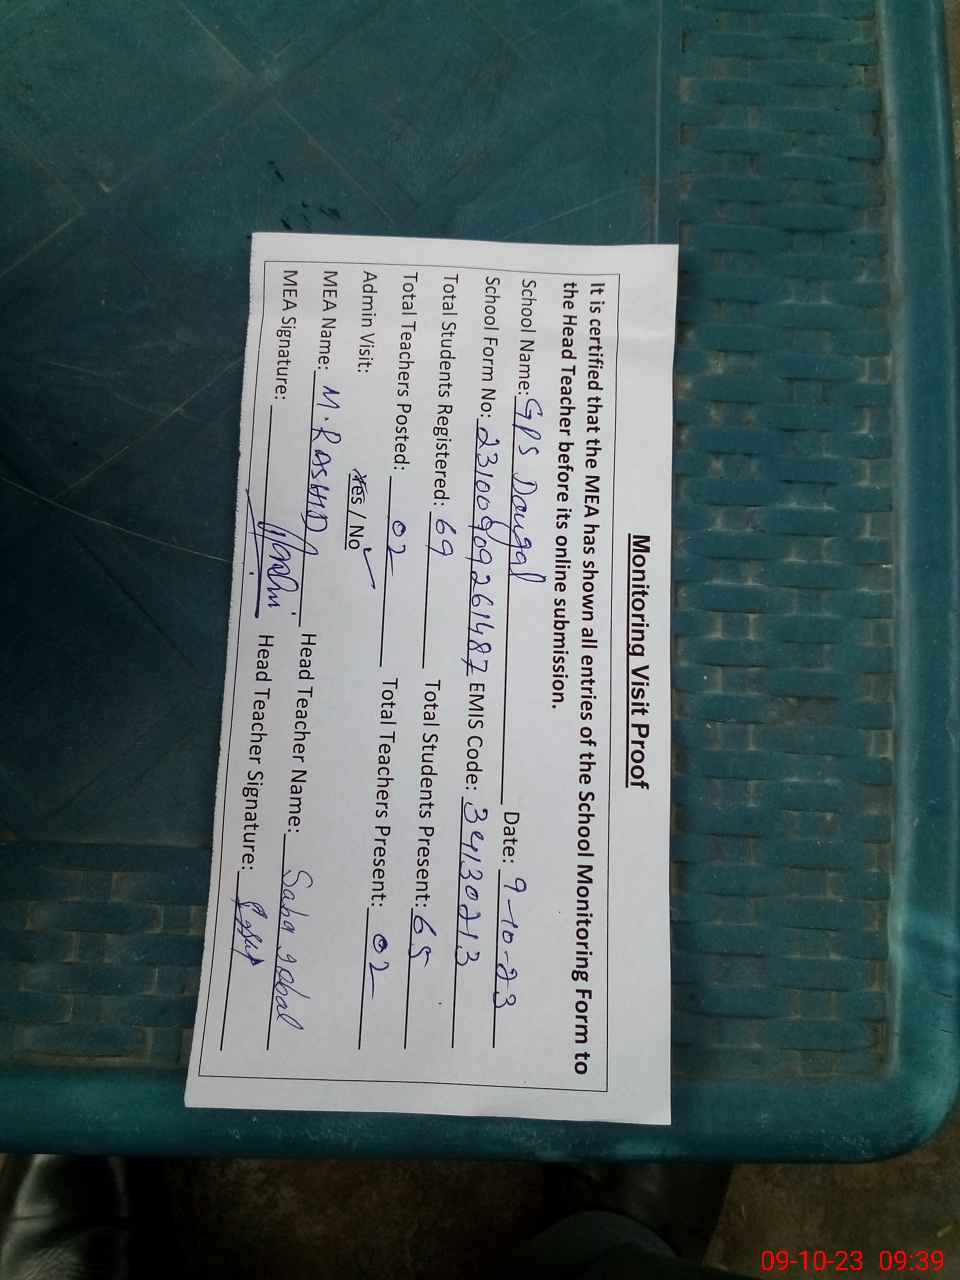 Monitoring Visit Proof
It is certified that the MEA has shown all entries of the School Monitoring Form to
the Head Teacher before its online submission.
School Name: GPS Dangal Date: 9-10-23
School Form No: 23100909261487 EMIS Code: 34130213
Total Students Registered: 69 Total Students Present: 65
Total Teachers Posted: 02 Total Teachers Present: 02
Admin Visit: Yes / No
MEA Name: M. RASHID Head Teacher Name: Saba Iqbal
MEA Signature: Head Teacher Signature:
09-10-23 09:39